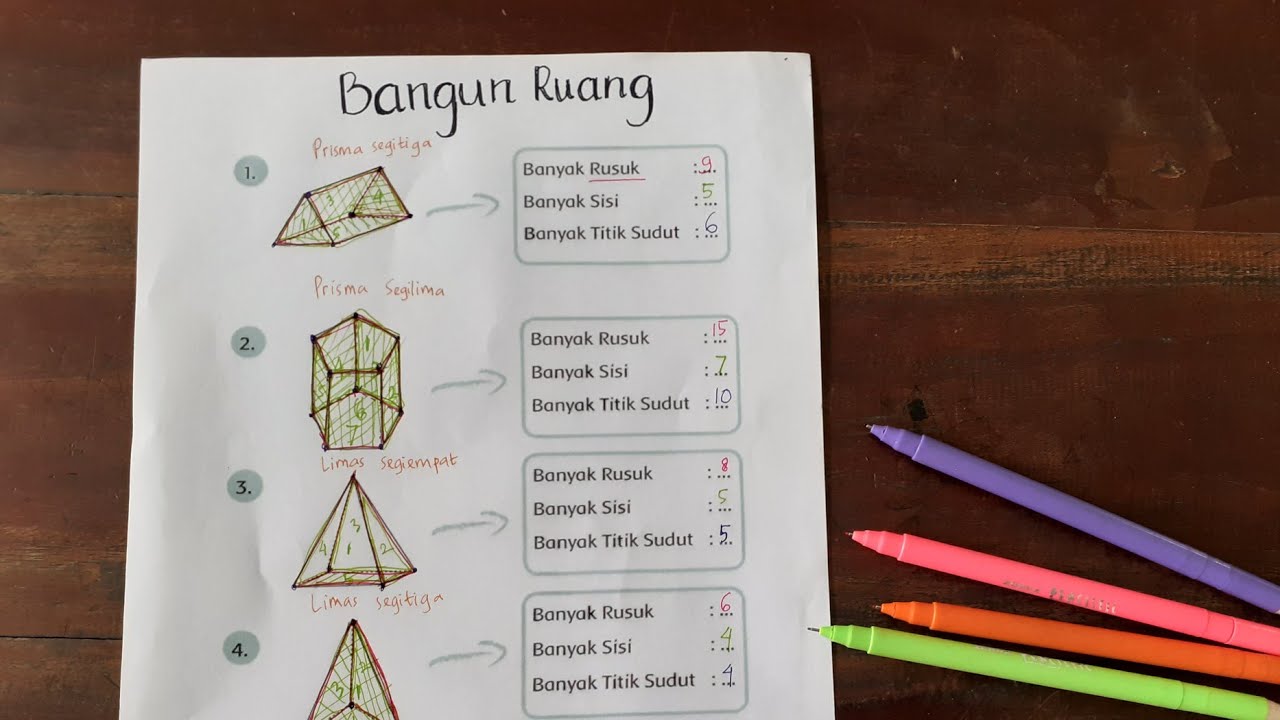 Bangun Ruang
Prisma segitiga
1.
Banyak Rusuk :... 9
Banyak Sisi :... 5
Banyak Titik Sudut :... 6
1 3 4 5
Prisma Segilima
2.
Banyak Rusuk :... 15
Banyak Sisi :... 7
Banyak Titik Sudut :... 10
1 6 7
Limas segiempat
3.
Banyak Rusuk :... 8
Banyak Sisi :... 5
Banyak Titik Sudut :... 5
3 4 1 2
Limas segitiga
4.
Banyak Rusuk :... 6
Banyak Sisi :... 4
Banyak Titik Sudut :... 4
3 1